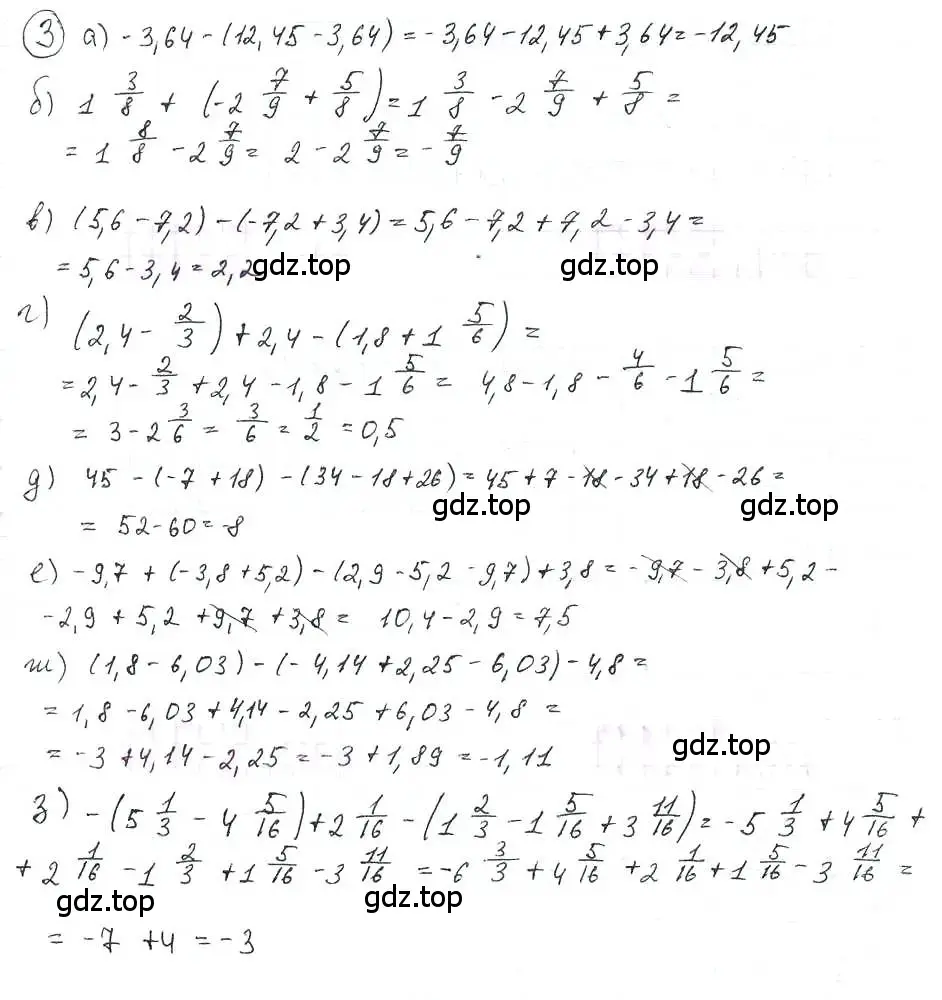 3) а) - 3,64 - (12,45 - 3,64) = - 3,64 - 12,45 + 3,64 = - 12,45
б) 1 3/8 + (-2 7/9 + 5/8) = 1 3/8 - 2 7/9 + 5/8 =
= 1 8/8 - 2 7/9 = 2 - 2 7/9 = - 7/9
в) (5,6 - 7,2) - (-7,2 + 3,4) = 5,6 - 7,2 + 7,2 - 3,4 =
= 5,6 - 3,4 = 2,2
gdz.top gdz.top
г) (2,4 - 2/3) + 2,4 - (1,8 + 1 5/6) =
= 2,4 - 2/3 + 2,4 - 1,8 - 1 5/6 = 4,8 - 1,8 - 4/6 - 1 5/6 =
= 3 - 2 3/6 = 3/6 = 1/2 = 0,5
д) 45 - (-7 + 18) - (34 - 18 + 26) = 45 + 7 - 18 - 34 + 18 - 26 =
gdz.top gdz.top
= 52 - 60 = -8
е) - 9,7 + (-3,8 + 5,2) - (2,9 - 5,2 - 9,7) + 3,8 = - 9,7 - 3,8 + 5,2 -
- 2,9 + 5,2 + 9,7 + 3,8 = 10,4 - 2,9 = 7,5
ж) (1,8 - 6,03) - (- 4,14 + 2,25 - 6,03) - 4,8 =
= 1,8 - 6,03 + 4,14 - 2,25 + 6,03 - 4,8 =
= - 3 + 4,14 - 2,25 = - 3 + 1,89 = - 1,11
gdz.top
з) - (5 1/3 - 4 5/16) + 2 1/16 - (1 2/3 - 1 5/16 + 3 11/16) = - 5 1/3 + 4 5/16 +
+ 2 1/16 - 1 2/3 + 1 5/16 - 3 11/16 = - 6 3/3 + 4 5/16 + 2 1/16 + 1 5/16 - 3 11/16 =
gdz.top gdz.top
= - 7 + 4 = - 3